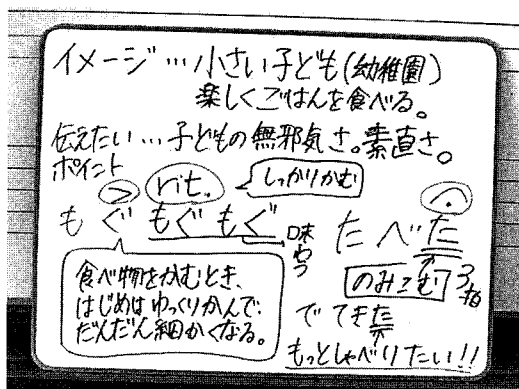 イメージ…小さい子ども(幼稚園)
楽しくごはんを食べる。
伝えたい…子どもの無邪気さ。素直さ。
ポイント
> rit. しっかりかむ
もぐ もぐ もぐ 味わう
食べ物をかむとき、
はじめはゆっくりかんで、
だんだん細かくなる。
たべた
のみこむ 3拍
でてきた
もっとしゃべりたい!!